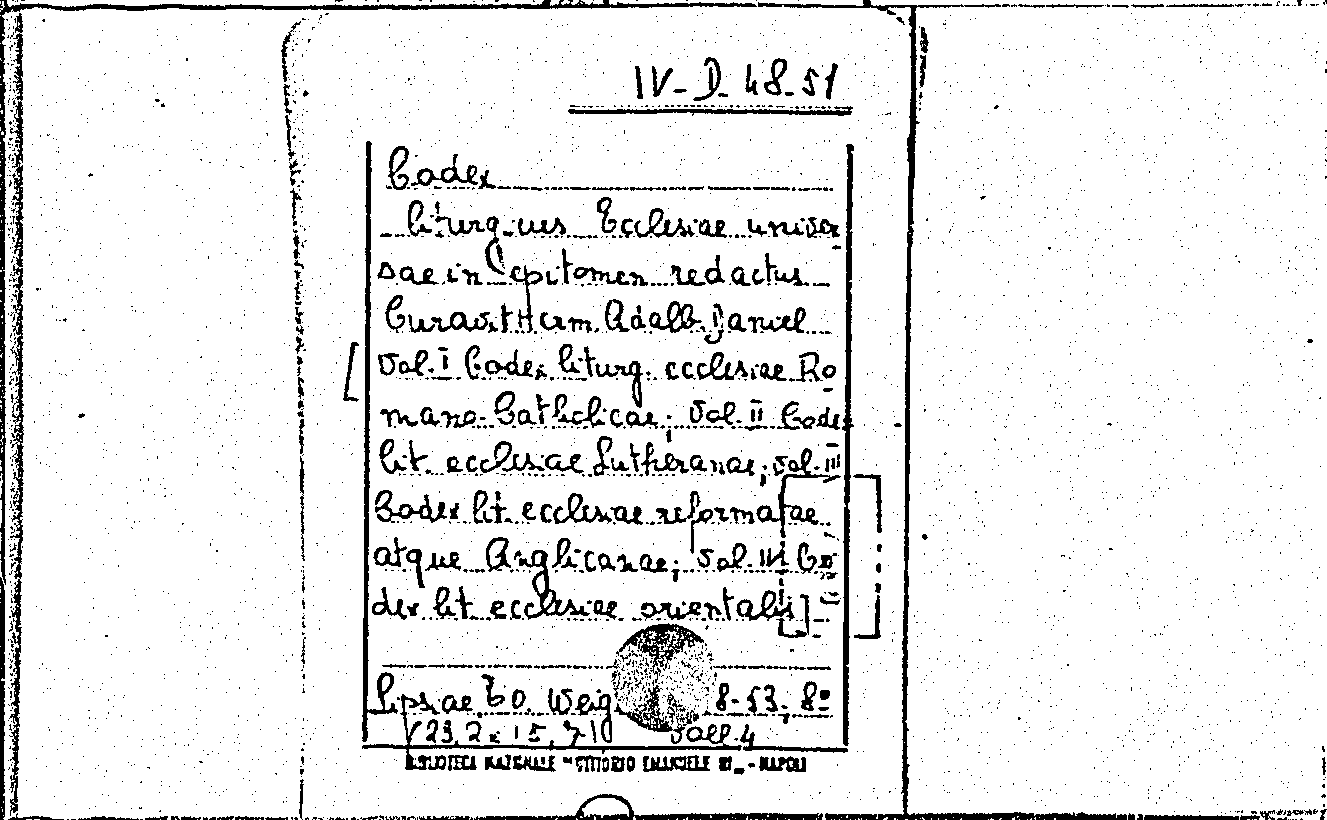 IV-D-48-51
Codex
liturgicus Ecclesiae univer
sae in epitomen redactus
Curavit Herm. Adalb. Daniel
[Vol. I Codex liturg. ecclesiae Ro
mano-Catholicae; Vol. II Codex
lit. ecclesiae Lutheranae; Vol. III
Codex lit. ecclesiae reformatae
atque Anglicanae; Vol. IV Co
dex lit ecclesiae orientalis]
Lipsiae, T. O. Weig 8-53, 8º
23,2 x 15, voll. 4
BIBLIOTECA NAZIONALE "VITTORIO EMANUELE III" - NAPOLI